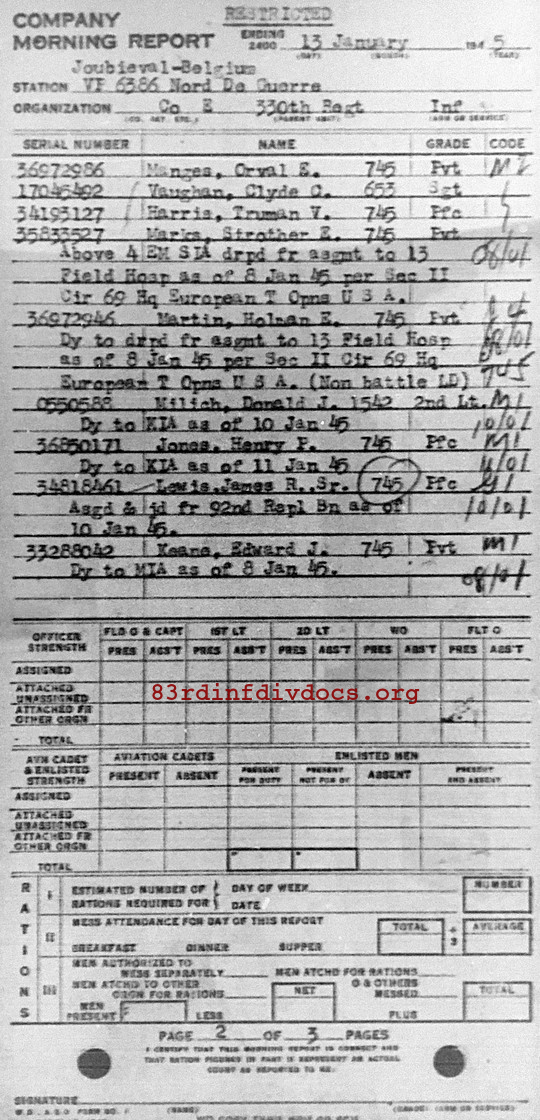 RESTRICTED
COMPANY
MORNING REPORT ENDING 2400 13 January 1945
(DAY) (MONTH) (YEAR)
Joubieval-Belgium
STATION VF 6386 Nord De Guerre
ORGANIZATION Co E 330th Regt Inf
(CO, DET, ETC.) (PARENT UNIT) (ARM OR SERVICE)
SERIAL NUMBER NAME GRADE CODE
36972986 Manges, Orval E. 745 Pvt MI
17045492 Vaughan, Clyde C. 653 Sgt
34193127 Harris, Truman V. 745 Pfc
35833527 Marks, Strother E. 745 Pvt
Above 4 EM SIA drpd fr asgmt to 13 08/01
Field Hosp as of 8 Jan 45 per Sec II
Cir 69 Hq European T Opns U S A.
36972946 Martin, Holman E. 745 Pvt
Dy to drpd fr asgmt to 13 Field Hosp 08/01
as of 8 Jan 45 per Sec II Cir 69 Hq
European T Opns U S A. (Non battle LD) 745
0550588 Milich, Donald J. 1542 2nd Lt. MI
Dy to KIA as of 10 Jan 45 10/01
36850171 Jones, Henry P. 745 Pfc MI
Dy to KIA as of 11 Jan 45 11/01
34818461 Lewis, James R., Sr. 745 Pfc
Asgd & jd fr 92nd Repl Bn as of 10/01
10 Jan 45.
33288042 Keane, Edward J. 745 Pvt MI
Dy to MIA as of 8 Jan 45. 08/01
OFFICER STRENGTH FLD O & CAPT 1ST LT 2D LT WO FLT O
PRES ABS'T PRES ABS'T PRES ABS'T PRES ABS'T PRES ABS'T
ASSIGNED
ATTACHED UNASSIGNED
83rdinfdivdocs.org
ATTACHED FR OTHER ORGN
TOTAL
AVN CADET & ENLISTED STRENGTH AVIATION CADETS ENLISTED MEN
PRESENT ABSENT PRESENT FOR DUTY PRESENT NOT FOR DY ABSENT PRESENT AND ABSENT
ASSIGNED
ATTACHED UNASSIGNED
ATTACHED FR OTHER ORGN
TOTAL
RATIONS
I ESTIMATED NUMBER OF RATIONS REQUIRED FOR { DAY OF WEEK DATE NUMBER
II MESS ATTENDANCE FOR DAY OF THIS REPORT TOTAL ÷ 3 AVERAGE
BREAKFAST DINNER SUPPER
III MEN AUTHORIZED TO MESS SEPARATELY MEN ATCHD FOR RATIONS
MEN ATCHD TO OTHER ORGN FOR RATIONS NET O & OTHERS MESSED TOTAL
MEN PRESENT LESS PLUS
PAGE 2 OF 3 PAGES
I CERTIFY THAT THIS MORNING REPORT IS CORRECT AND
THAT RATION FIGURES IN PART III REPRESENT AN ACTUAL
COUNT AS REPORTED TO ME.
SIGNATURE
W.D., A.G.O. FORM NO. 1 (NAME) (GRADE) (ARM OR SERVICE)